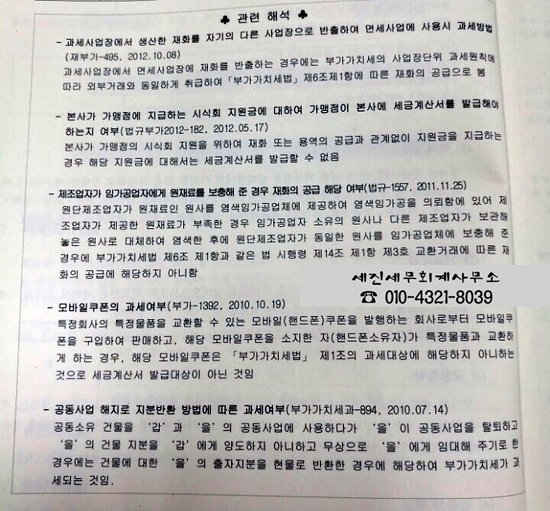 ♣ 관련 해석 ♣
- 과세사업장에서 생산한 재화를 자기의 다른 사업장으로 반출하여 면세사업에 사용시 과세방법
(재부가-495, 2012.10.08)
과세사업장에서 면세사업장에 재화를 반출하는 경우에는 부가가치세의 사업장단위 과세원칙에
따라 외부거래와 동일하게 취급하여「부가가치세법」제6조제1항에 따른 재화의 공급으로 봄
- 본사가 가맹점에 지급하는 시식회 지원금에 대하여 가맹점이 본사에 세금계산서를 발급해야
하는지 여부(법규부가2012-182, 2012.05.17)
본사가 가맹점의 시식회 지원을 위하여 재화 또는 용역의 공급과 관계없이 지원금을 지급하는
경우 해당 지원금에 대해서는 세금계산서를 발급할 수 없음
- 제조업자가 임가공업자에게 원재료를 보충해 준 경우 재화의 공급 해당 여부(법규-1557, 2011.11.25)
원단제조업자가 원재료인 원사를 염색임가공업체에 제공하여 염색임가공을 의뢰함에 있어 제
조업자가 제공한 원재료가 부족한 경우 임가공업자 소유의 원사나 다른 제조업자가 보관해
놓은 원사로 대체하여 염색한 후에 원단제조업자가 동일한 원사를 임가공업체에 보충해 준
경우에 부가가치세법 제6조 제1항과 같은 법 시행령 제14조 제1항 제3호 교환거래에 따른 재
화의 공급에 해당하지 아니함
세진세무회계사무소
☎ 010-4321-8039
- 모바일쿠폰의 과세여부(부가-1392, 2010.10.19)
특정회사의 특정물품을 교환할 수 있는 모바일(핸드폰)쿠폰을 발행하는 회사로부터 모바일쿠
폰을 구입하여 판매하고, 해당 모바일쿠폰을 소지한 자(핸드폰소유자)가 특정물품과 교환하
게 하는 경우, 해당 모바일쿠폰은 「부가가치세법」 제1조의 과세대상에 해당하지 아니하는
것으로 세금계산서 발급대상이 아닌 것임
- 공동사업 해지로 지분반환 방법에 따른 과세여부(부가가치세과-894, 2010.07.14)
공동소유 건물을 '갑' 과 '을' 의 공동사업에 사용하다가 '을' 이 공동사업을 탈퇴하고
'을' 의 건물 지분을 '갑' 에게 양도하지 아니하고 무상으로 '을' 에게 임대해 주기로 한
경우에는 건물에 대한 '을' 의 출자지분을 현물로 반환한 경우에 해당하여 부가가치세가 과
세되는 것임.